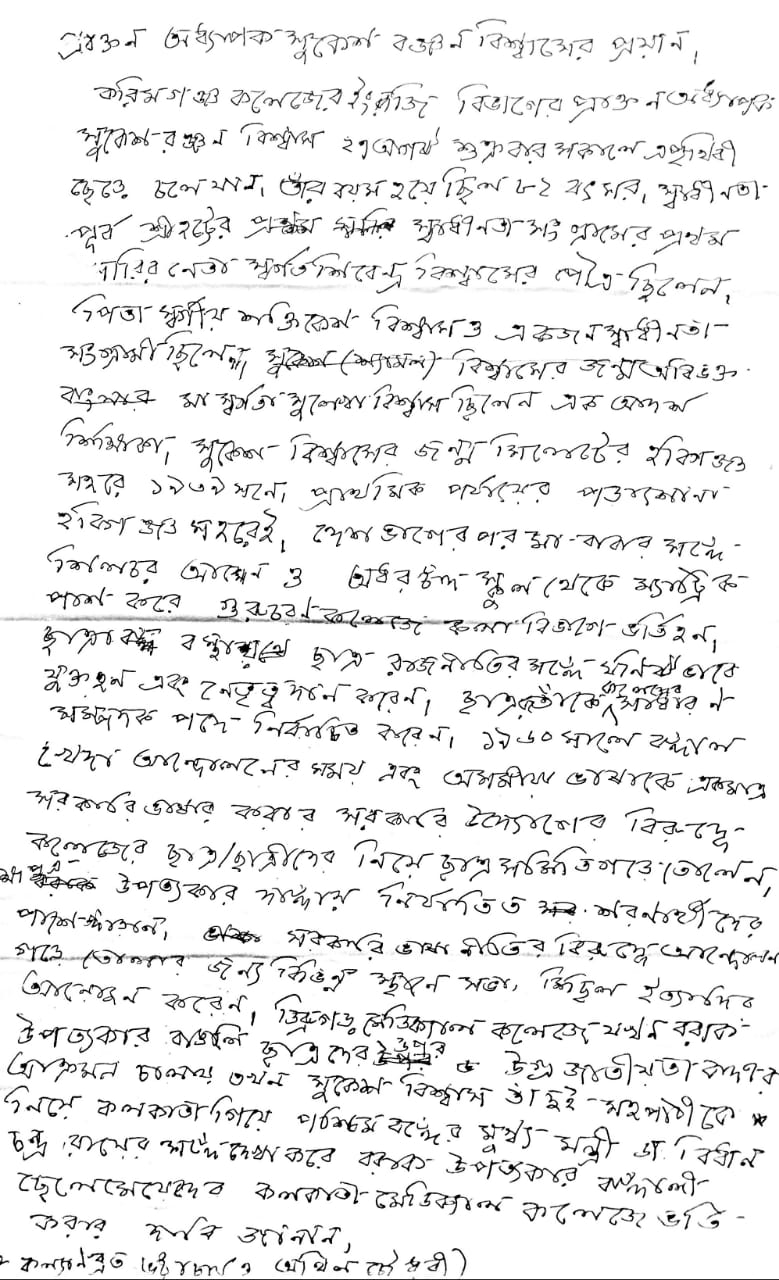 প্রাক্তন অধ্যাপক সুকেশ রঞ্জন বিশ্বাসের প্রয়ান।
করিমগঞ্জ কলেজের ইংরাজি বিভাগের প্রাক্তন অধ্যাপক
সুকেশ রঞ্জন বিশ্বাস ২৭ আগষ্ট শুক্রবার সকালে এপৃথিবী
ছেড়ে চলে যান। তাঁর বয়স হয়েছিল ৮২ বৎসর। স্বাধীনতা
পূর্ব শ্রীহট্টের প্রথম স্বাধীনতা সংগ্রামের প্রথম
সারির নেতা স্বর্গত শিবেন্দ্র বিশ্বাসের পৌত্র ছিলেন।
পিতা স্বর্গীয় শক্তিকেশ বিশ্বাস ও একজন স্বাধীনতা
সংগ্রামী ছিলেন। সুকেশ (শ্যামল) বিশ্বাসের জন্ম অবিভক্ত
বাংলার মা স্বর্গতা সুলেখা বিশ্বাস ছিলেন এক আদর্শ
শিক্ষিকা। সুকেশ বিশ্বাসের জন্ম সিলেটের হবিগঞ্জ
সহরে ১৯৩৯ সনে। প্রাথমিক পর্যায়ের পড়াশোনা
হবিগঞ্জ সহরেই। দেশ ভাগের পর মা-বাবার সঙ্গে
শিলচর আসেন ও অধর চাঁদ স্কুল থেকে ম্যাট্রিক
পাশ করে গুরুচরন কলেজে কলা বিভাগে ভর্তি হন।
ছাত্রাবস্থায় ছাত্র রাজনীতির সঙ্গে ঘনিষ্ঠ ভাবে
যুক্ত হন এবং নেতৃত্ব দান করেন। ছাত্ররা তাঁকে কলেজের সাধারন
সম্পাদক পদে নির্বাচিত করেন। ১৯৬০ সালে বঙ্গাল
খেদা আন্দোলনের সময় এবং অসমীয়া ভাষাকে একমাত্র
সরকারি ভাষার করার সরকারি উদ্যোগের বিরুদ্ধে
কলেজের ছাত্র/ছাত্রীদের নিয়ে ছাত্র সমিতি গড়ে তোলেন।
উপত্যকার দাঙ্গায় নির্যাতিত শরনার্থীদের
পাশে দাঁড়ান। সরকারি ভাষা নীতির বিরুদ্ধে আন্দোলন
গড়ে তোলার জন্য বিভিন্ন স্থানে সভা, মিছিল ইত্যাদির
আয়োজন করেন। ডিব্রুগড় মেডিক্যাল কলেজে যখন বরাক
উপত্যকার বাঙালি ছাত্রদের উপর উগ্র জাতীয়তাবাদীরা
আক্রমন চালায় তখন সুকেশ বিশ্বাস তাঁ দুই সহপাঠীকে *
নিয়ে কলকাতা গিয়ে পশ্চিম বঙ্গের মুখ্য মন্ত্রী ডা বিধান
চন্দ্র রায়ের সঙ্গে দেখা করে বরাক উপত্যকার বাঙ্গালী
ছেলেমেয়েদের কলকাতা মেডিক্যাল কলেজে ভর্তি
করার দাবি জানান।
কল্যানব্রত ভট্টাচার্য ও অখিল চৌধুরী)